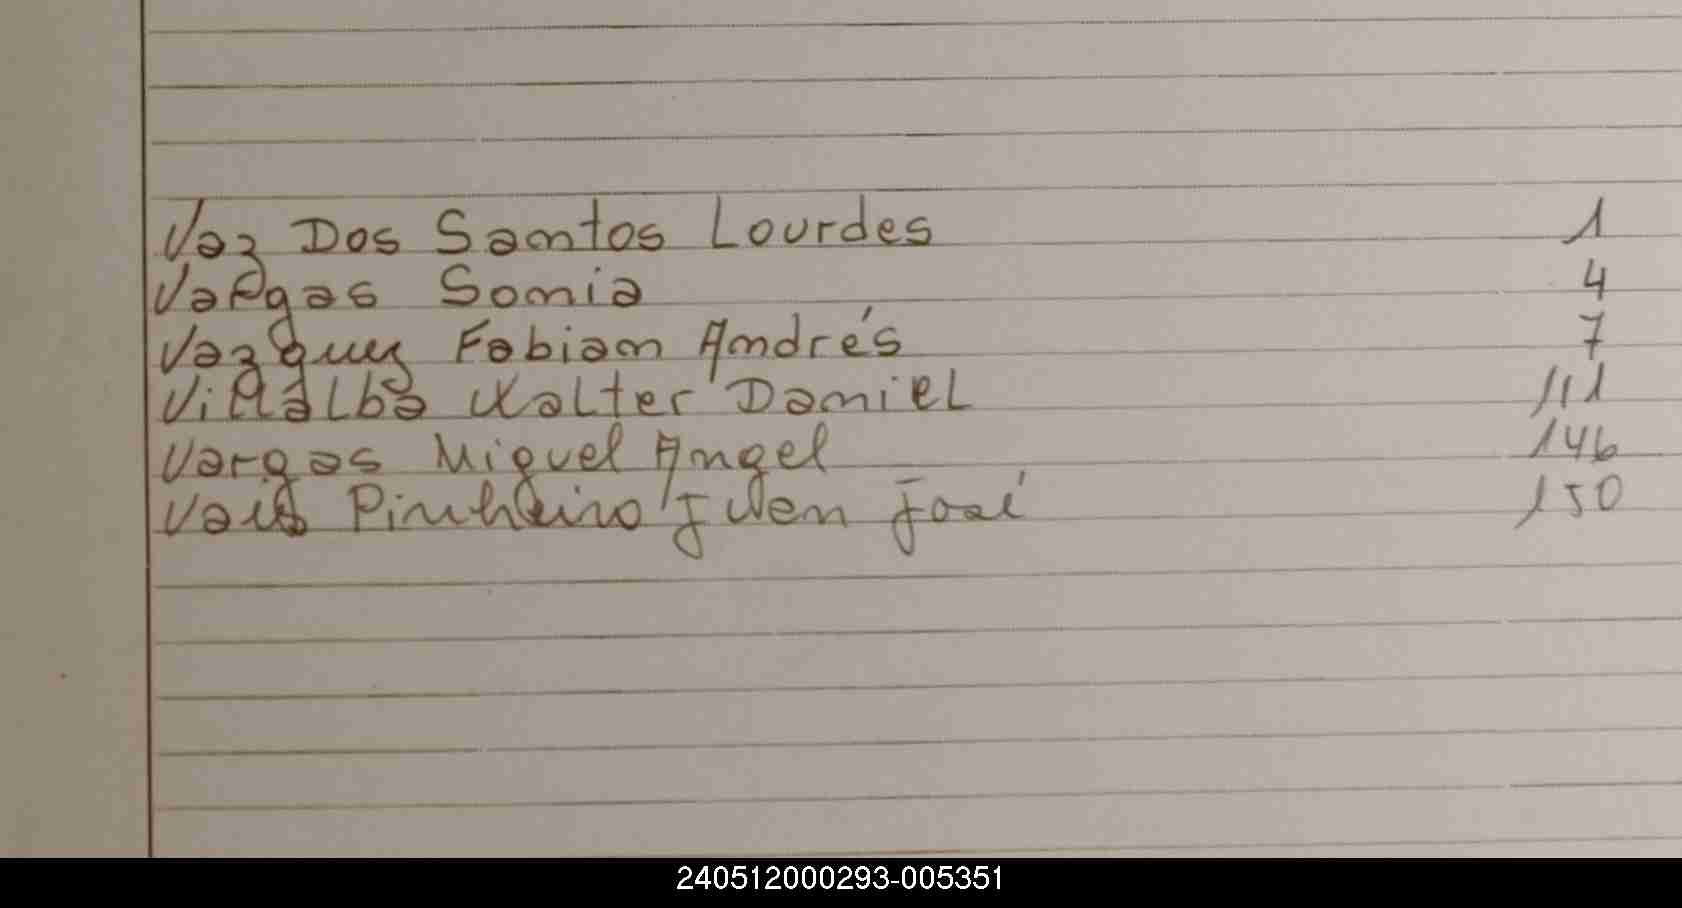 Vaz Dos Santos Lourdes 1
Vargas Sonia 4
Vazquez Fabian Andrés 7
Villalba Walter Daniel 111
Vargas Miguel Angel 146
Pinheiro Juan José 150
240512000293-005351